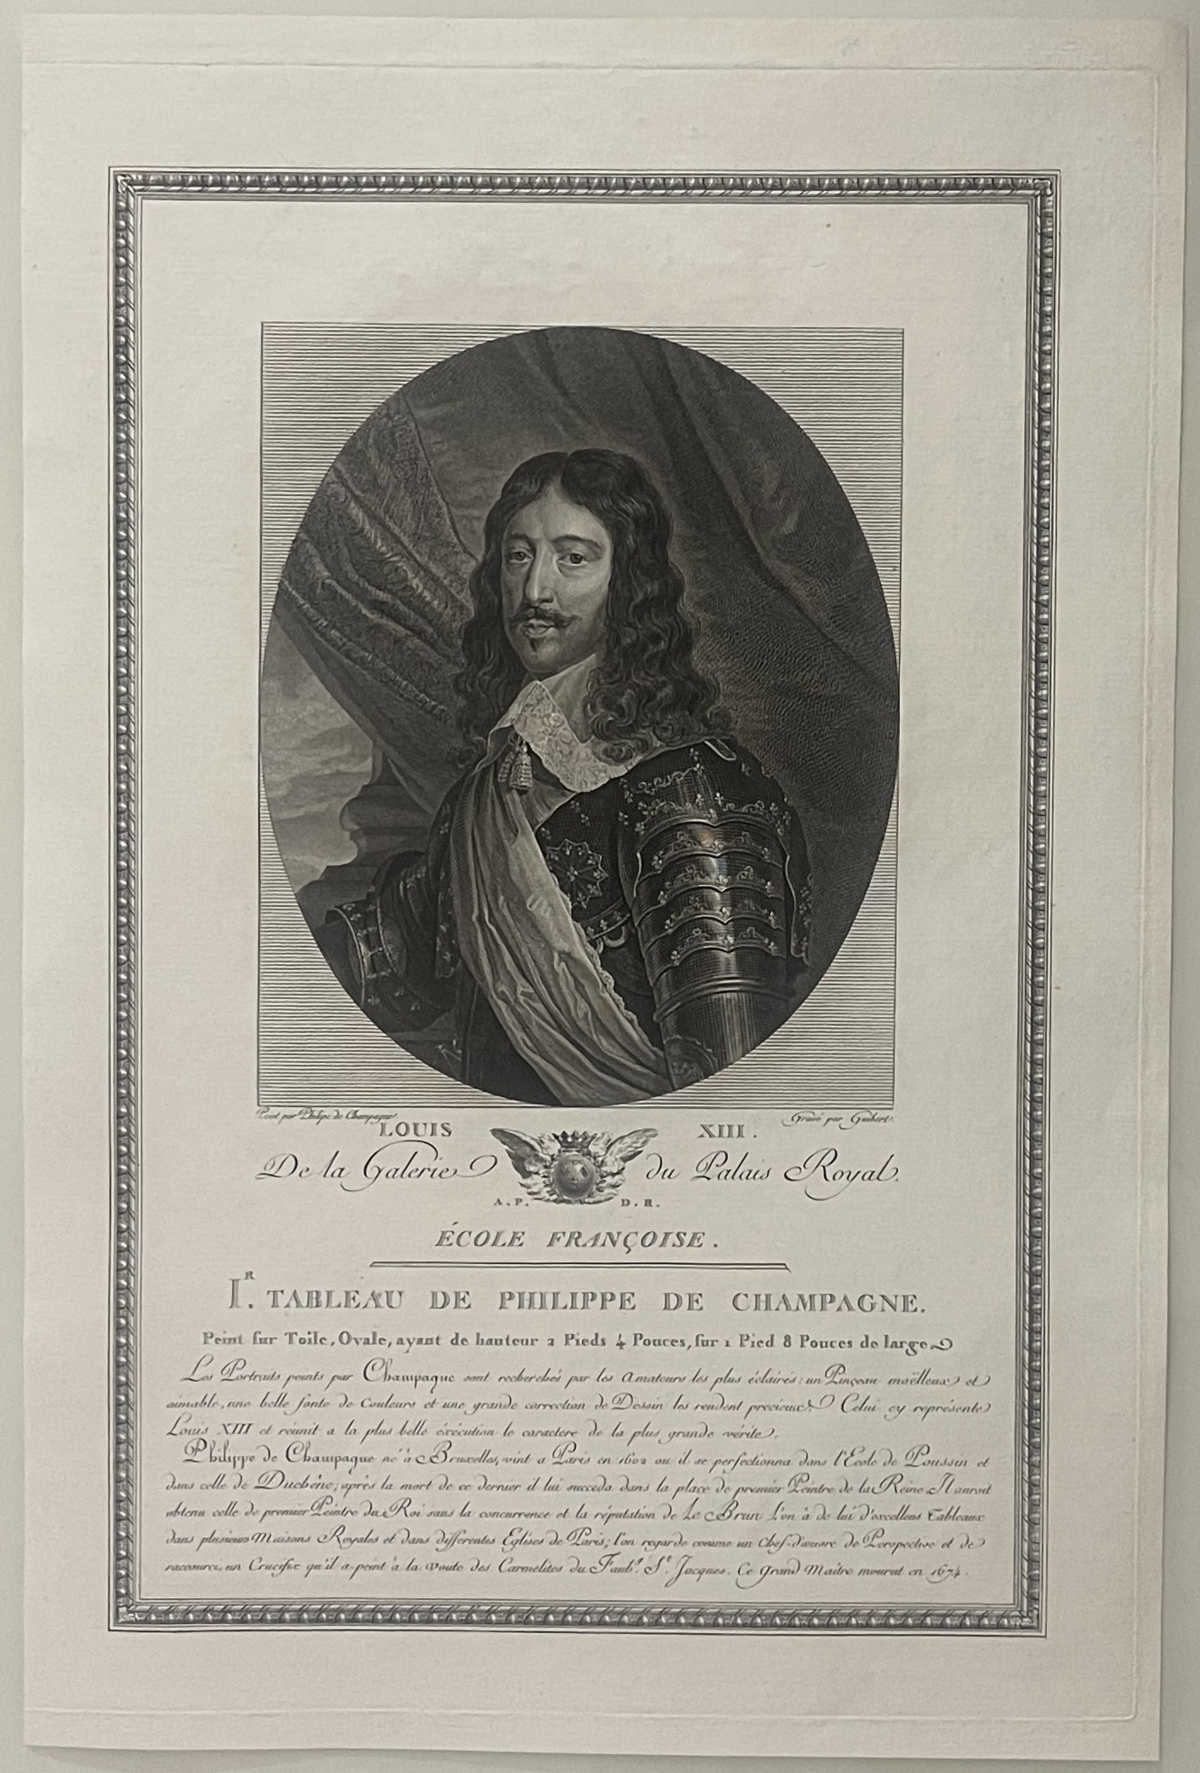 Peint par Philipe de Champagne
Gravé par Guibert
LOUIS XIII.
De la Galerie du Palais Royal.
A.P. D.R.
ÉCOLE FRANÇOISE.
I.R TABLEAU DE PHILIPPE DE CHAMPAGNE.
Peint sur Toile, Ovale, ayant de hauteur 2 Pieds 4 Pouces, sur 1 Pied 8 Pouces de large
Les Portraits peints par Champagne sont recherchés par les Amateurs les plus éclairés; un Pinçeau moëlleux et
aimable, une belle fonte de Couleurs et une grande correction de Dessin les rendent precieux. Celui cy représente
Louis XIII et réunit a la plus belle éxécution le caractere de la plus grande vérité.
Philippe de Champagne né à Bruxelles, vint a Paris en 1602 ou il se perfectionna dans l'École de Poussin et
dans celle de Duchêne; après la mort de ce dernier il lui succéda dans la place de premier Peintre de la Reine. Il auroit
obtenu celle de premier Peintre du Roi sans la concurrence et la réputation de Le Brun. L'on à de lui d'excellens Tableaux
dans plusieurs Maisons Royales et dans differentes Eglises de Paris; l'on regarde comme un Chef-d'œuvre de Perspective et de
raccourci, un Crucifix qu'il a peint à la voute des Carmelites du Faub.g St Jacques. Ce Grand Maître mourut en 1674.